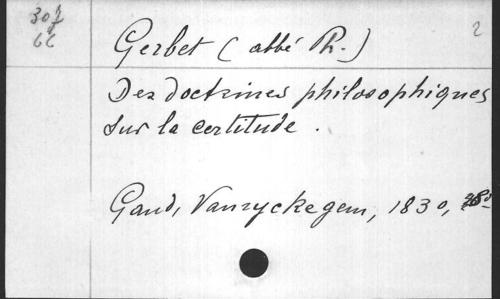 307
66
Gerbet (abbé Ph.)
2
Des doctrines philosophiques
sur la certitude.
Gand, Vanryckegem, 1830, 8o